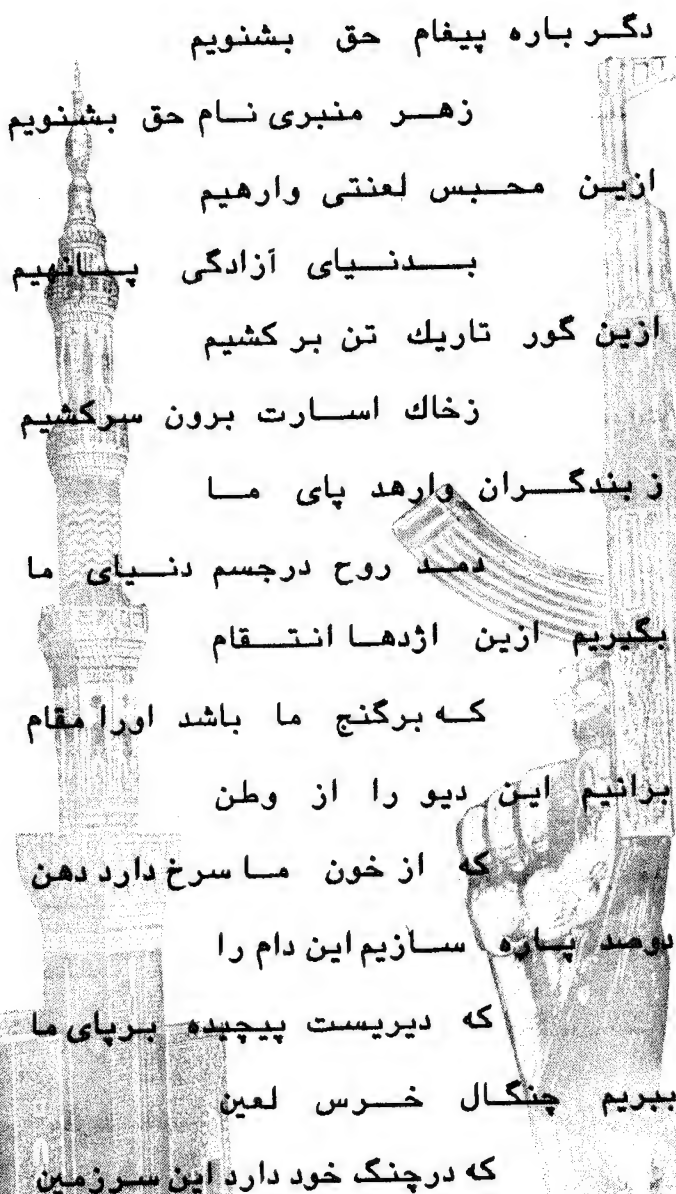 دگر باره پیغام حق بشنویم
زهر منبری نام حق بشنویم
ازین محبس لعنتی وارهیم
بدنیای آزادگی پانهیم
ازین گور تاریك تن بركشیم
زخاك اسارت برون سركشیم
ز بندگران وارهد پای ما
دمد روح درجسم دنیای ما
بگیریم ازین اژدها انتقام
که برگنج ما باشد اورا مقام
برانیم این دیو را از وطن
که از خون ما سرخ دارد دهن
دوصد پاره سازیم این دام را
که دیریست پیچیده برپای ما
ببریم چنگال خرس لعین
که درچنگ خود دارد این سرزمین